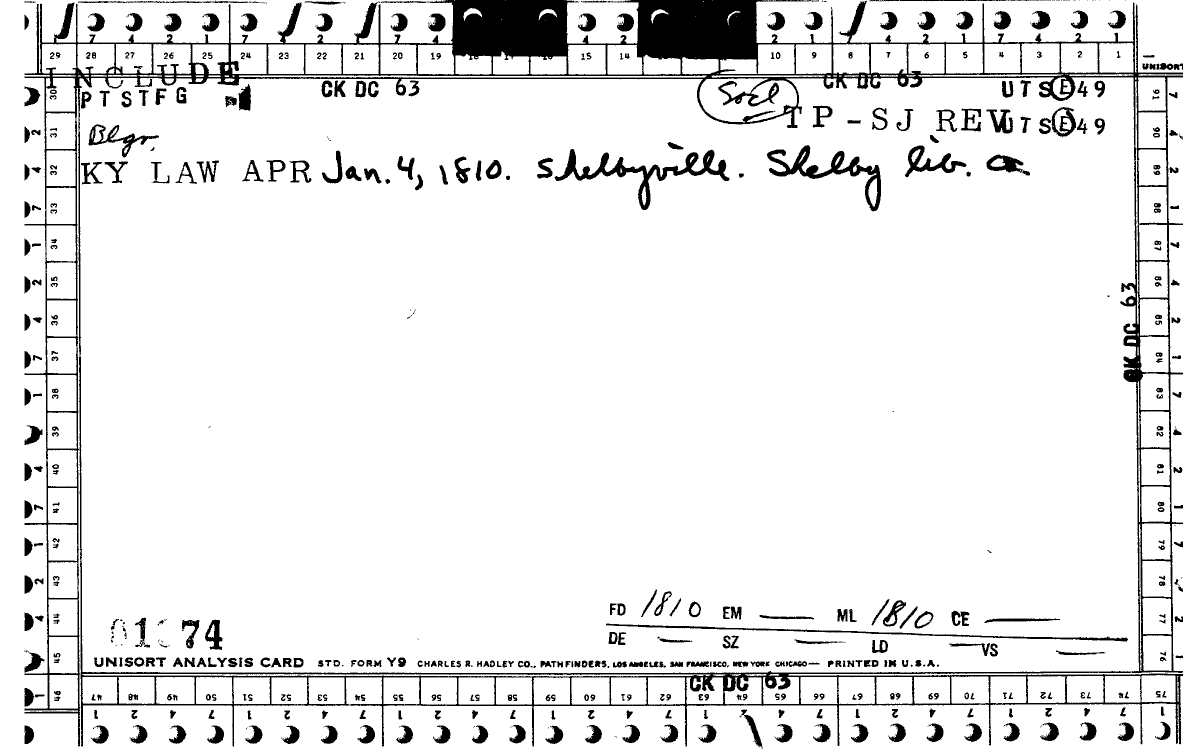 7 4 2 1 7 4 2 1 7 4 2 1 2 1 7 4 2 1 7 4 2 1
29 28 27 26 25 24 23 22 21 20 19 15 14 10 9 8 7 6 5 4 3 2 1
UNISORT
INCLUDE
PTSTFG CK DC 63 Socl CK DC 63 UTSE49
TP-SJ REV UTSE49
Blgr.
KY LAW APR Jan. 4, 1810. Shelbyville. Shelby lib. co
30 31 32 33 34 35 36 37 38 39 40 41 42 43 44 45 46
2 4 7 1 2 4 7 1 2 4 7 1 2 4 7 1
91 90 89 88 87 86 85 84 83 82 81 80 79 78 77 76
7 4 2 1 7 4 2 1 7 4 2 1 7 2 1
CK DC 63
FD 1810 EM — ML 1810 CE —
DE — SZ — LD — VS —
74
UNISORT ANALYSIS CARD STD. FORM Y9 CHARLES R. HADLEY CO., PATHFINDERS, LOS ANGELES, SAN FRANCISCO, NEW YORK CHICAGO— PRINTED IN U.S.A.
CK DC 63
47 48 49 50 51 52 53 54 55 56 57 58 59 60 61 62 63 64 65 66 67 68 69 70 71 72 73 74 75
1 2 4 7 1 2 4 7 1 2 4 7 1 2 4 7 1 2 4 7 1 2 4 7 1 2 4 7 1